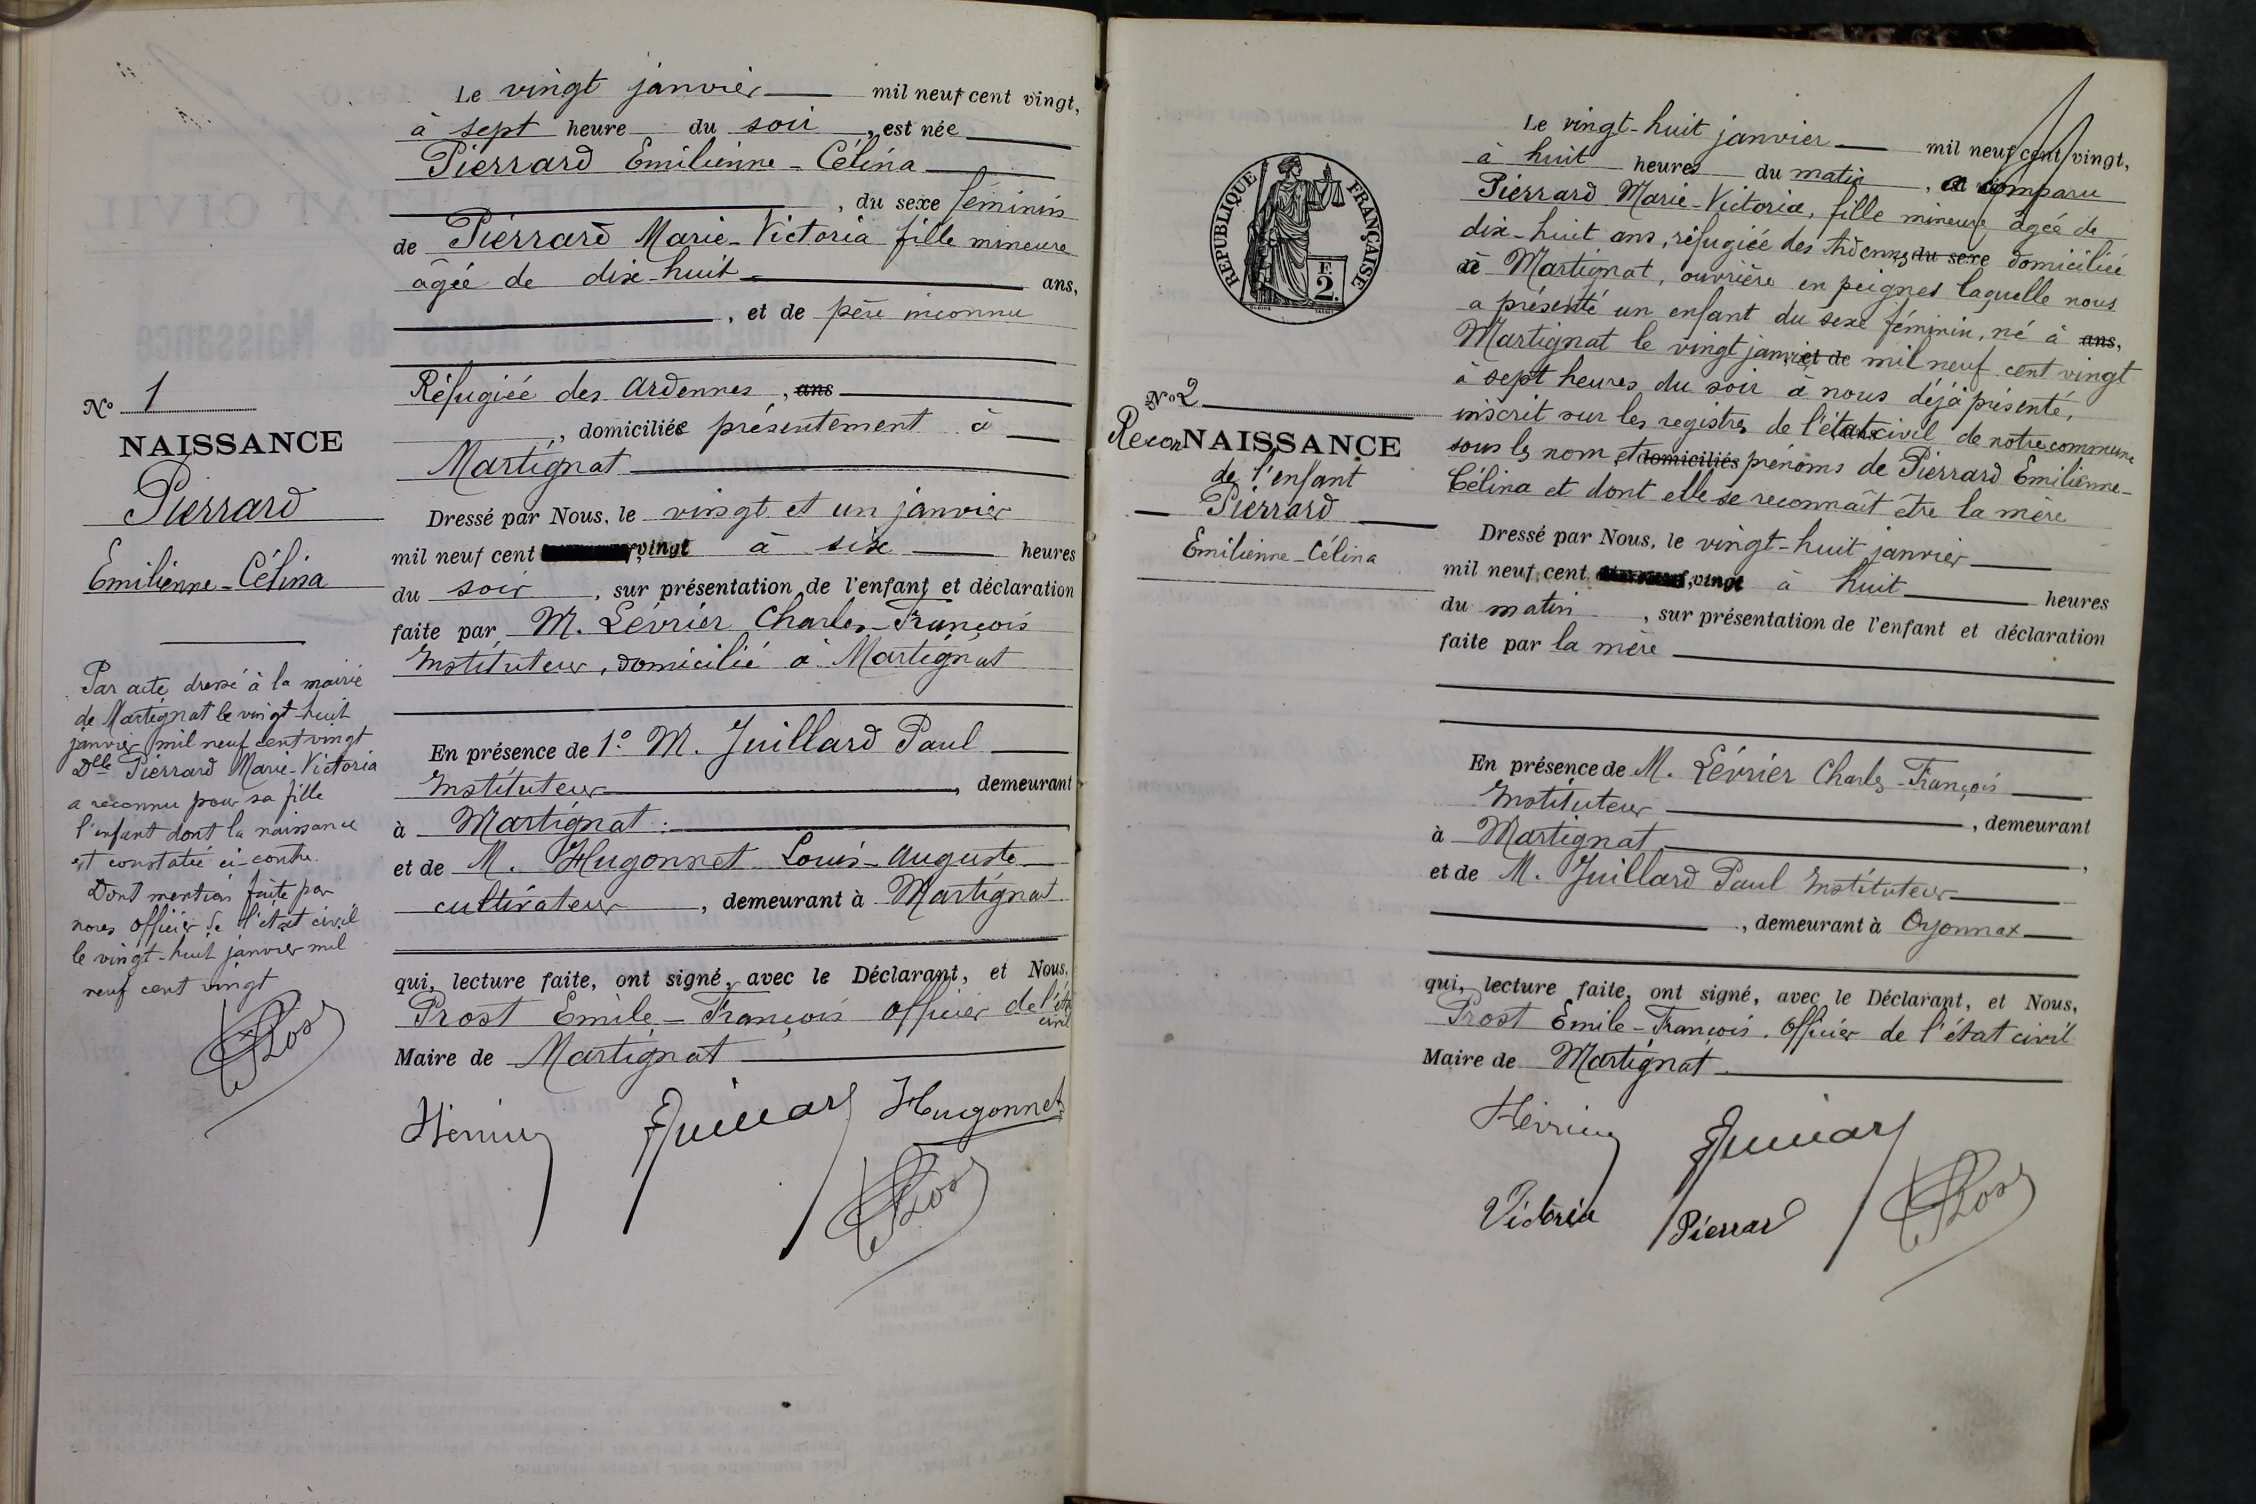 Le vingt janvier mil neuf cent vingt,
à sept heure du soir, est née
Pierrard Emilienne-Célina
, du sexe féminin
de Pierrard Marie-Victoria fille mineure
âgée de dix-huit ans,
, et de père inconnu
Réfugiée des Ardennes, ans
, domiciliée présentement à
Martignat
Dressé par Nous, le vingt et un janvier
mil neuf cent vingt à six heures
du soir, sur présentation de l'enfant et déclaration
faite par M. Lévrier Charles-François
Instituteur, domicilié à Martignat
En présence de 1º M. Juillard Paul
Instituteur, demeurant
à Martignat.
et de M. Hugonnet Louis-Auguste
cultivateur, demeurant à Martignat
qui, lecture faite, ont signé, avec le Déclarant, et Nous,
Prost Emile-François officier de l'état civil
Maire de Martignat
Juillard Hugonnet
Prost
Nº 1
NAISSANCE
Pierrard
Emilienne-Célina
Par acte dressé à la mairie
de Martignat le vingt-huit
janvier mil neuf cent vingt
Dlle Pierrard Marie-Victoria
a reconnu pour sa fille
l'enfant dont la naissance
est constatée ci-contre.
Dont mention faite par
nous officier de l'état civil
le vingt-huit janvier mil
neuf cent vingt
Prost
RÉPUBLIQUE FRANÇAISE
E
2.
Nº 2
Recon NAISSANCE
de l'enfant
Pierrard
Emilienne-Célina
Le vingt-huit janvier mil neuf cent vingt,
à huit heures du matin, a comparu
Pierrard Marie-Victoria, fille mineure âgée de
dix-huit ans, réfugiée des Ardennes du sexe domiciliée
à Martignat, ouvrière en peignes laquelle nous
a présenté un enfant du sexe féminin, né à ans,
Martignat le vingt janvier et de mil neuf cent vingt
à sept heures du soir à nous déjà présenté,
inscrit sur les registres de l'état civil de notre commune
sous les nom et domiciliés prénoms de Pierrard Emilienne-
Célina et dont elle se reconnaît être la mère
Dressé par Nous, le vingt-huit janvier
mil neuf cent vingt à huit heures
du matin, sur présentation de l'enfant et déclaration
faite par la mère
En présence de M. Lévrier Charles-François
Instituteur, demeurant
à Martignat,
et de M. Juillard Paul Instituteur
, demeurant à Oyonnax
qui, lecture faite, ont signé, avec le Déclarant, et Nous,
Prost Emile-François. Officier de l'état civil
Maire de Martignat.
Juillard
Victoria Pierrard Prost